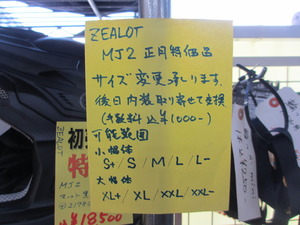 ZEALOT
MJ2 正月特価品
サイズ変更承ります。
後日内装取り寄せて交換
(手数料込¥1000-)
可能範囲
小帽体
S+/S/M/L/L-
大帽体
XL+/XL/XXL/XXL-
ZEALOT
初
特
MJ2
¥18500